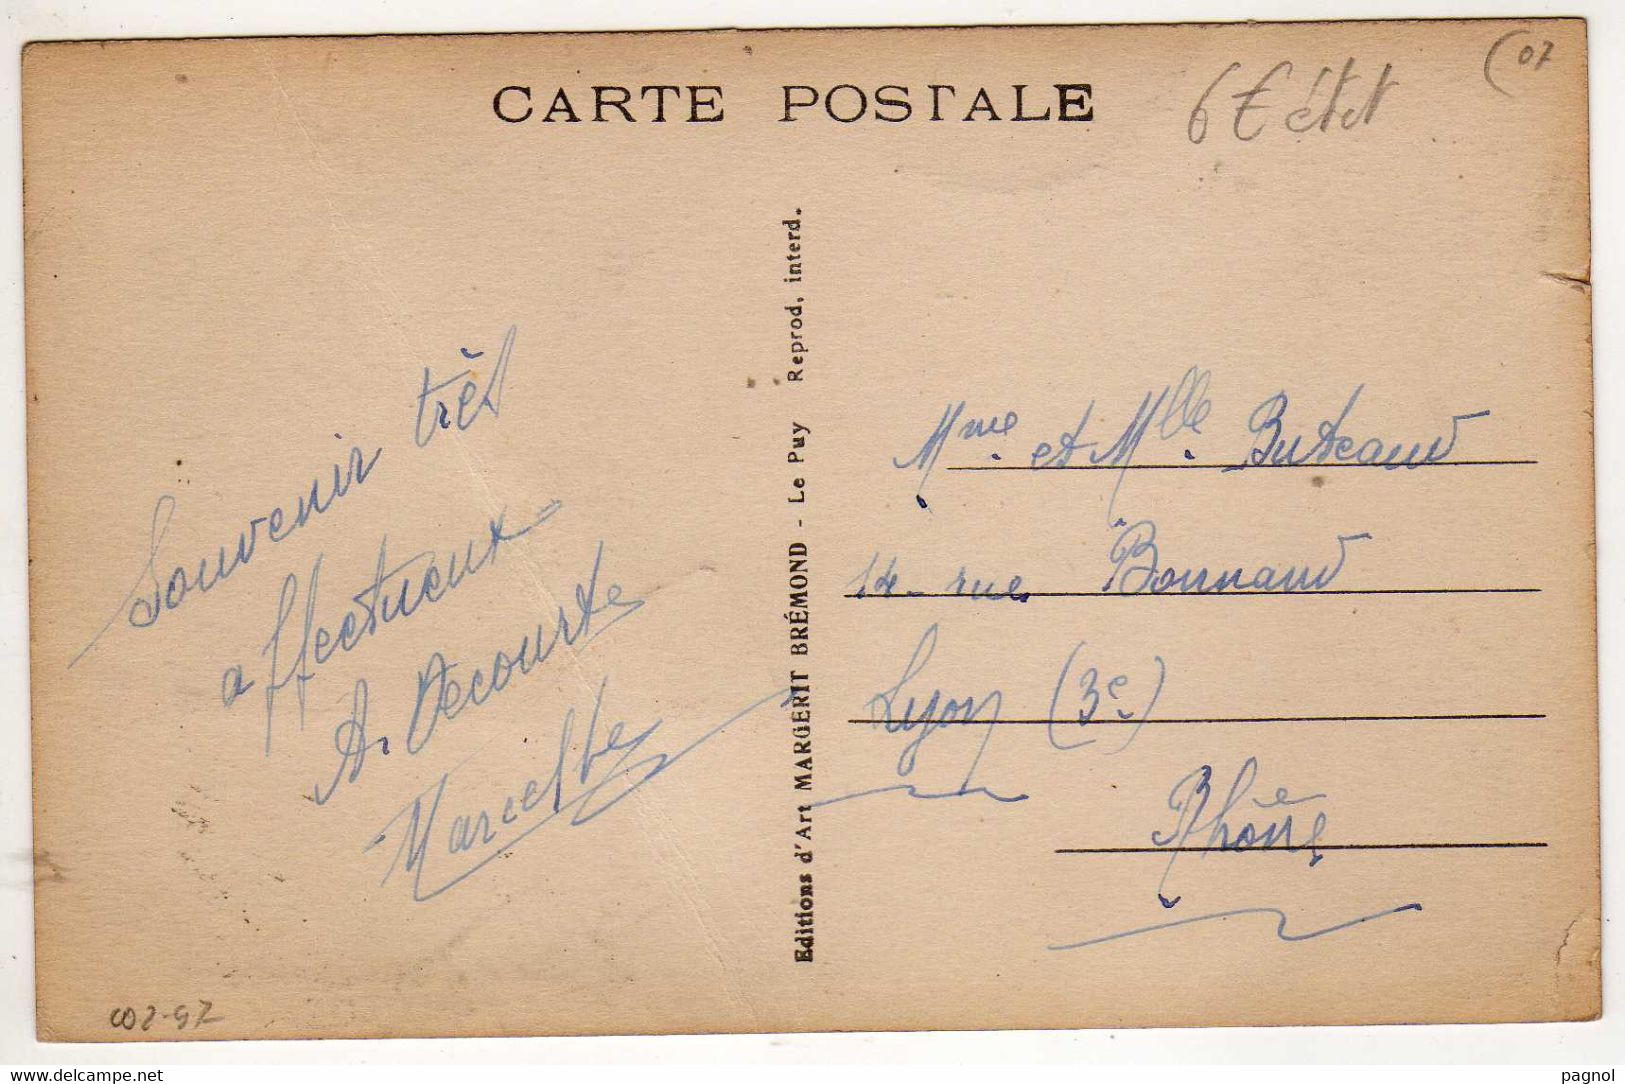 CARTE POSTALE
6€ état
07
Souvenir très
affectueux
A. Decourte
Marcelle
Editions d'Art MARGERIT BRÉMOND - Le Puy Reprod. interd.
Mme et Mlle Buteaud
14 - rue Bonnand
Lyon (3e)
Rhône
www.delcampe.net
pagnol